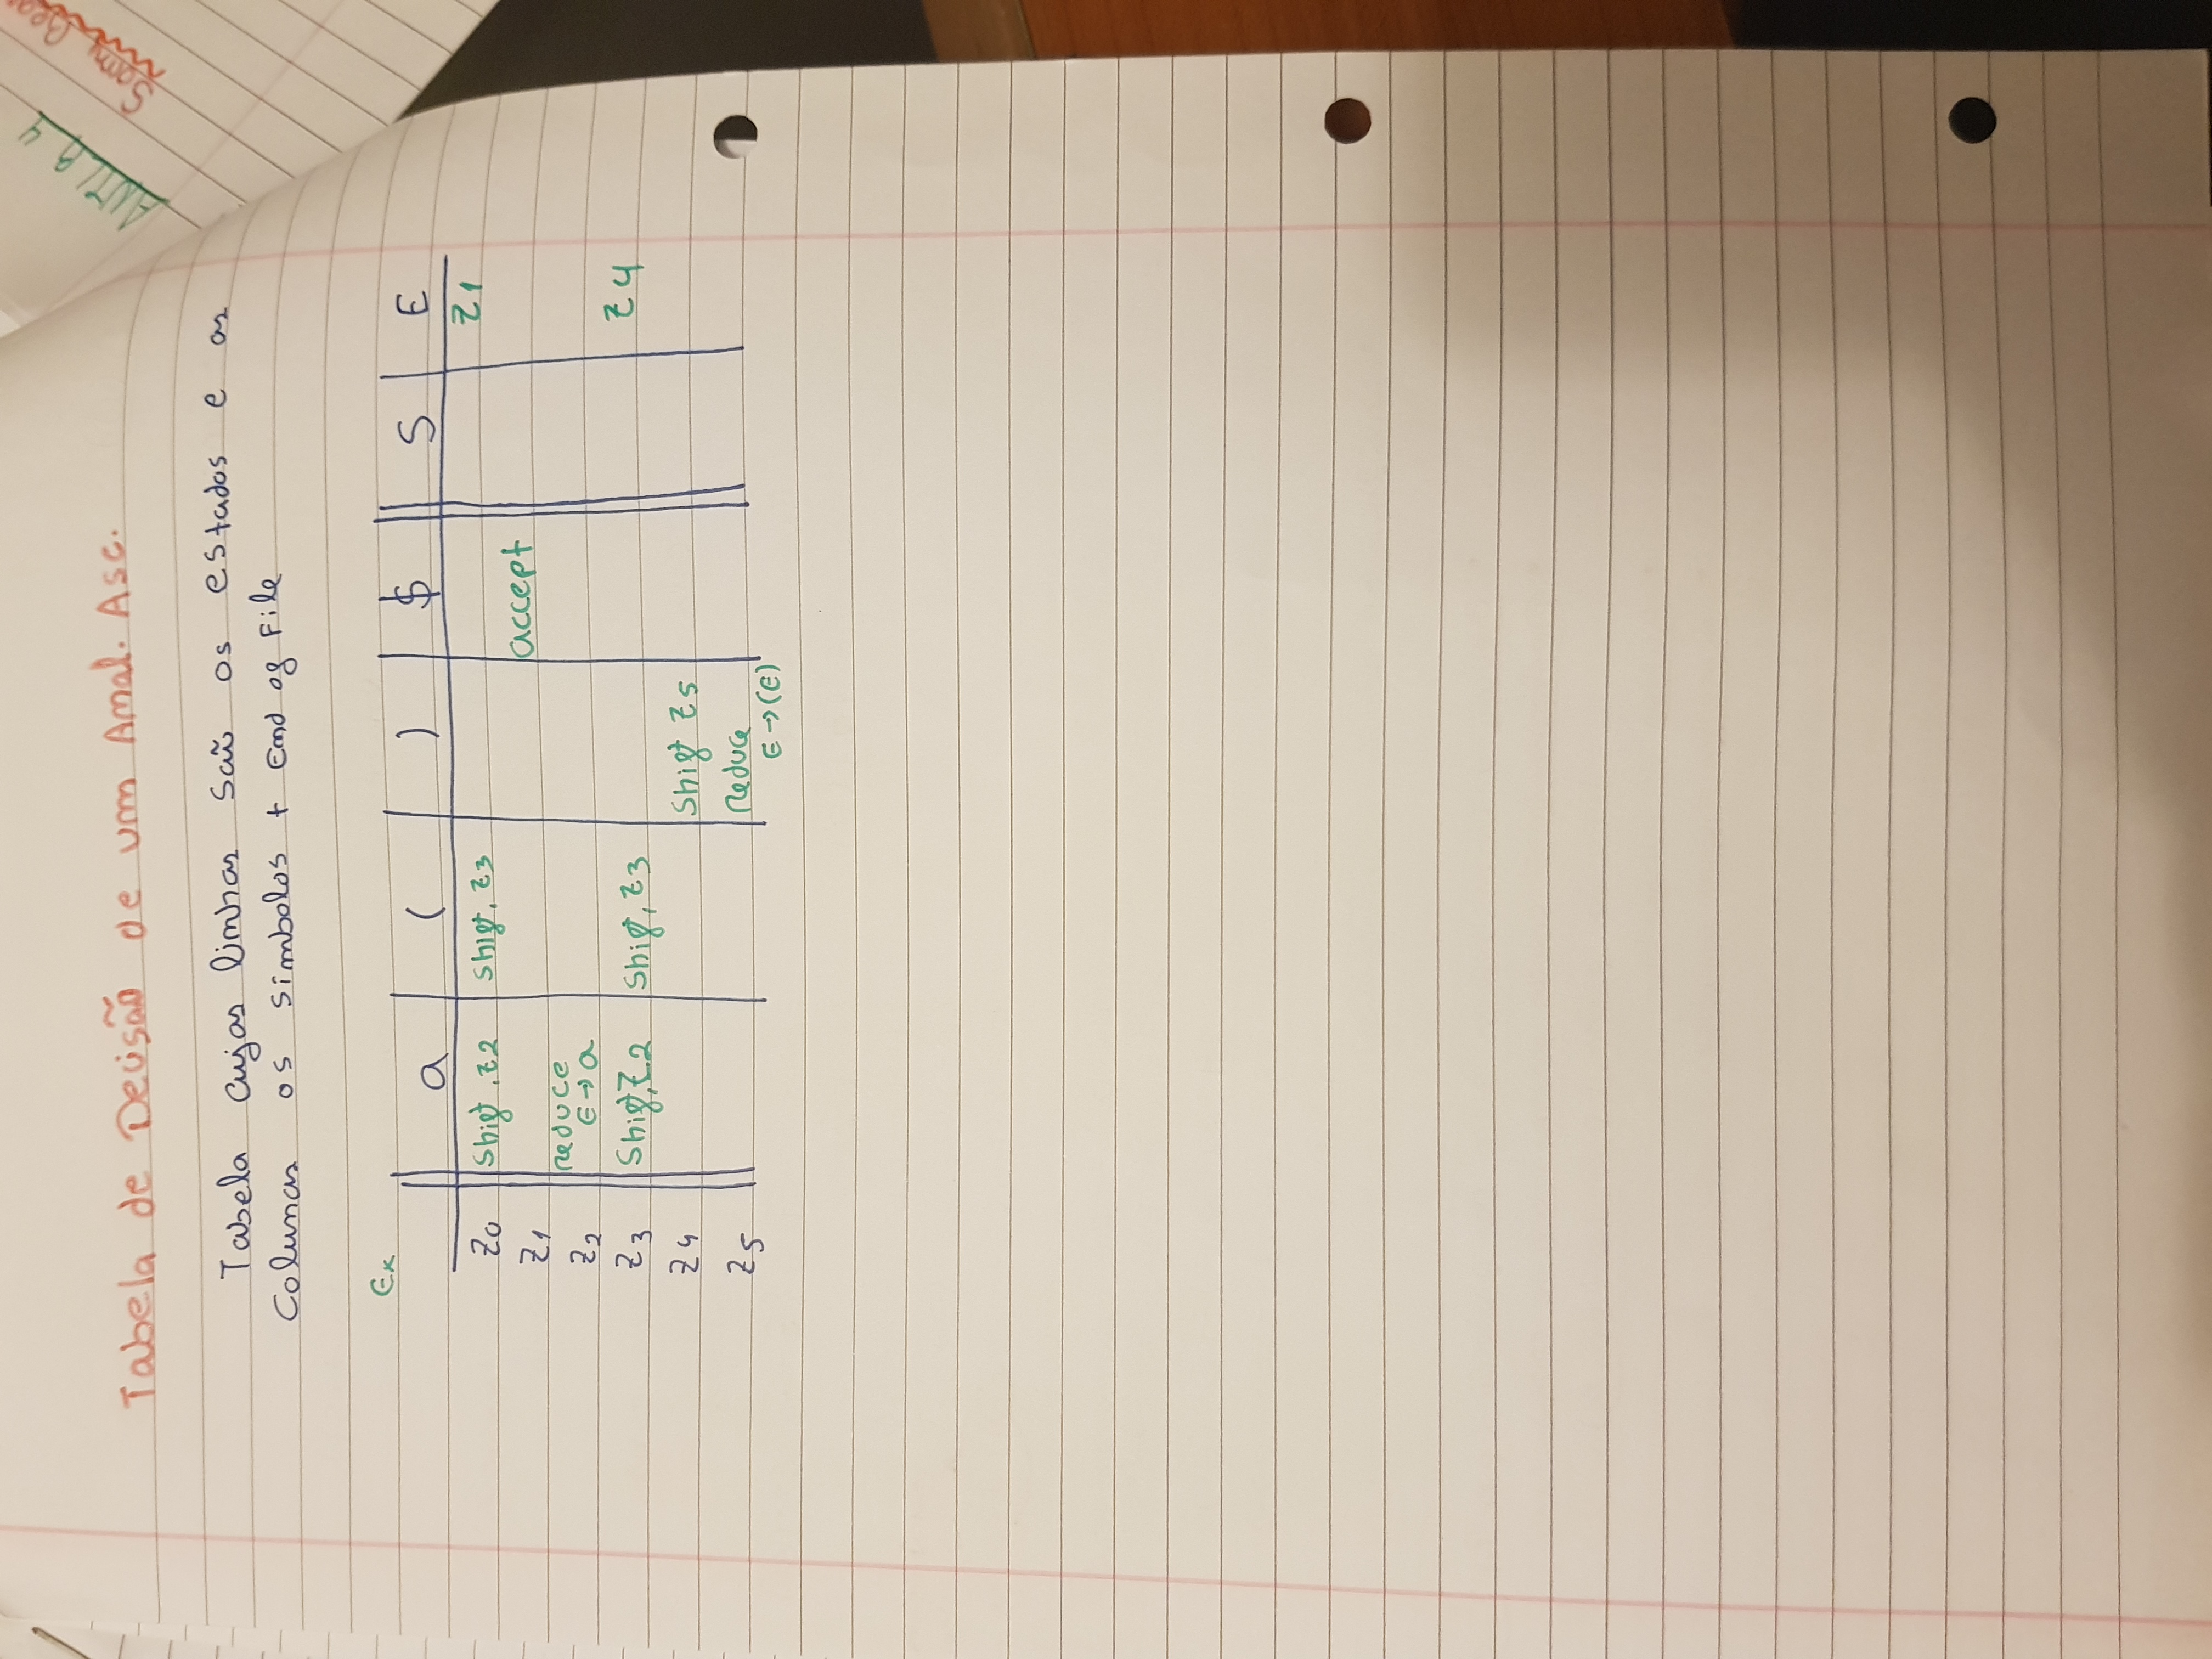 Tabela de Decisão de um Anal. Asc.
ANTLR 4
Tabela cujas linhas são os estados e as
Colunas os simbolos + End of File
Ex
a ( ) $ S E
Z0 Shift, Z2 Shift, Z3 Z1
Z1 accept
Z2 reduce E → a
Z3 Shift, Z2 Shift, Z3 Z4
Z4 Shift Z5
Z5 Reduce E → (E)